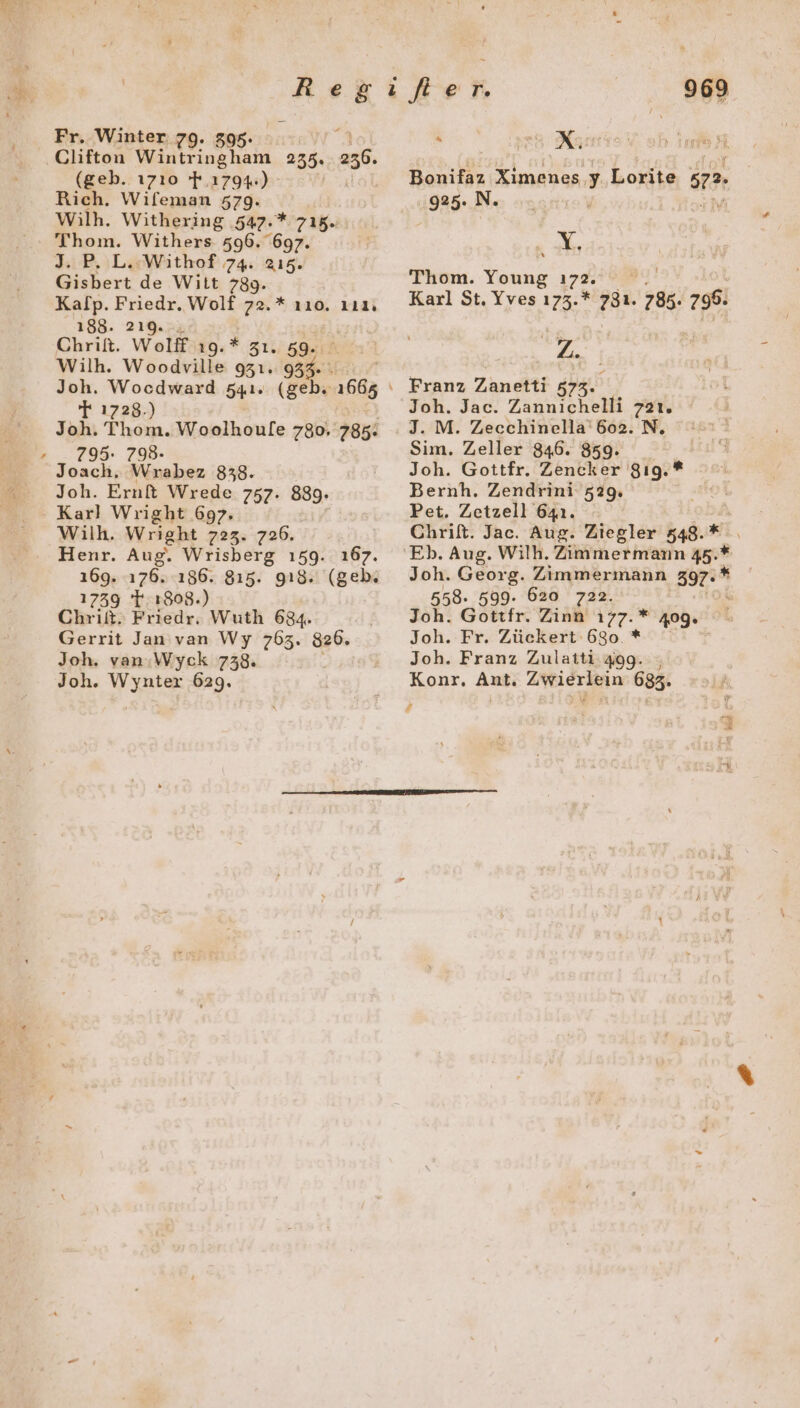 Regiſter. 969
Fr. Winter 79. 395.
Clifton Wintringham 235. 236.
(geb. 1710 † 1794.)
Rich. Wiſeman 579.
Wilh. Withering 547.* 715.
Thom. Withers 596. 697.
J. P. L. Withof 74. 215.
Gisbert de Witt 789.
Kaſp. Friedr. Wolf 72.* 110. 111.
188. 219.
Chriſt. Wolff 19.* 31. 59.
Wilh. Woodville 931. 933.
Joh. Woodward 541. (geb. 1665
† 1728.)
Joh. Thom. Woolhouſe 780. 785.
795. 798.
Joach. Wrabez 838.
Joh. Ernſt Wrede 757. 889.
Karl Wright 697.
Wilh. Wright 723. 726.
Henr. Aug. Wrisberg 159. 167.
169. 176. 186. 815. 918. (geb.
1739 † 1808.)
Chriſt. Friedr. Wuth 684.
Gerrit Jan van Wy 763. 826.
Joh. van Wyck 738.
Joh. Wynter 629.
X.
Bonifaz Ximenes y Lorite 572.
925. N.
Y.
Thom. Young 172.
Karl St. Yves 173.* 781. 785. 796.
Z.
Franz Zanetti 573.
Joh. Jac. Zannichelli 721.
J. M. Zecchinella 602. N.
Sim. Zeller 846. 859.
Joh. Gottfr. Zencker 819.*
Bernh. Zendrini 529.
Pet. Zetzell 641.
Chriſt. Jac. Aug. Ziegler 548.*
Eb. Aug. Wilh. Zimmermann 45.*
Joh. Georg. Zimmermann 397.*
558. 599. 620 722.
Joh. Gottfr. Zinn 177.* 409.
Joh. Fr. Zückert 680 *
Joh. Franz Zulatti 499.
Konr. Ant. Zwierlein 683.